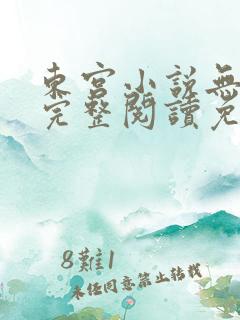 東宮小說無
完整閱讀免
8難1
未经同意禁止转载